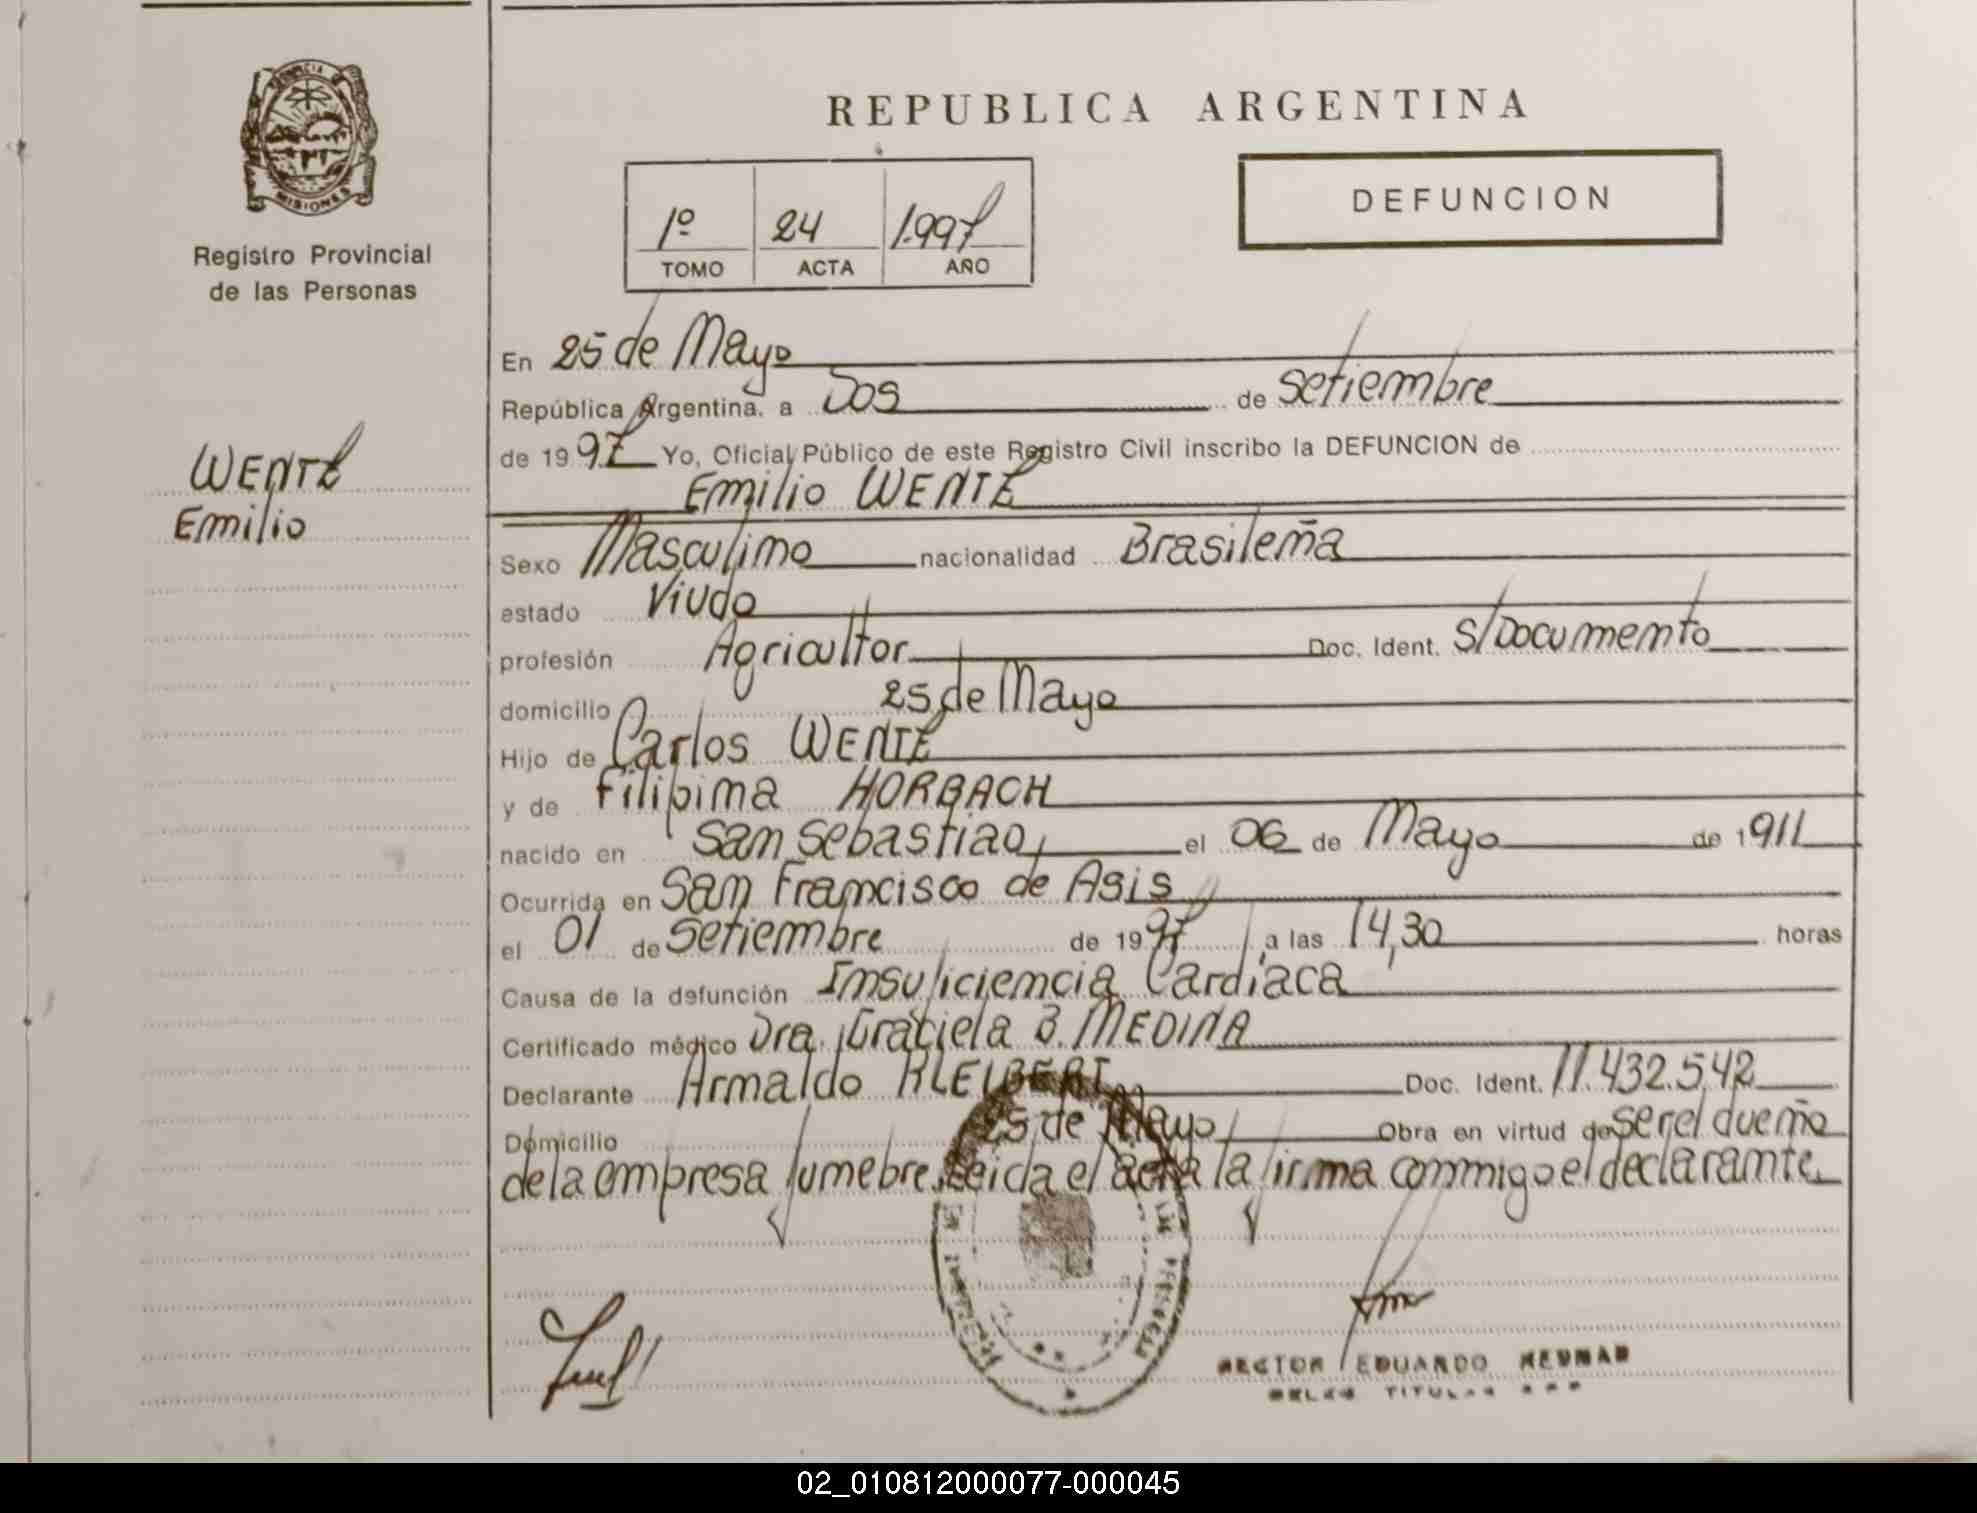 PROVINCIA DE
MISIONES
Registro Provincial
de las Personas
WENTZ
Emilio
REPUBLICA ARGENTINA
1º 24 1.997
TOMO ACTA AÑO
DEFUNCION
En 25 de Mayo
República Argentina, a Dos de Setiembre
de 1997 Yo, Oficial Público de este Registro Civil inscribo la DEFUNCION de
Emilio WENTZ
Sexo Masculino nacionalidad Brasileña
estado Viudo
profesión Agricultor Doc. Ident. S/Documento
domicilio 25 de Mayo
Hijo de Carlos WENTZ
y de Filipina HORBACH
nacido en San Sebastiao, el 06 de Mayo de 1911
Ocurrida en San Francisco de Asis
el 01 de Setiembre de 1997, a las 14,30 horas
Causa de la defunción Insuficiencia Cardíaca
Certificado médico Dra. Graciela B. MEDINA
Declarante Arnaldo KLEIBERT Doc. Ident. 11.432.542
Domicilio 25 de Mayo Obra en virtud de ser el dueño
de la empresa funebre. Leida el acta la firma conmigo el declarante.
HECTOR EDUARDO
TITULAR
02_010812000077-000045